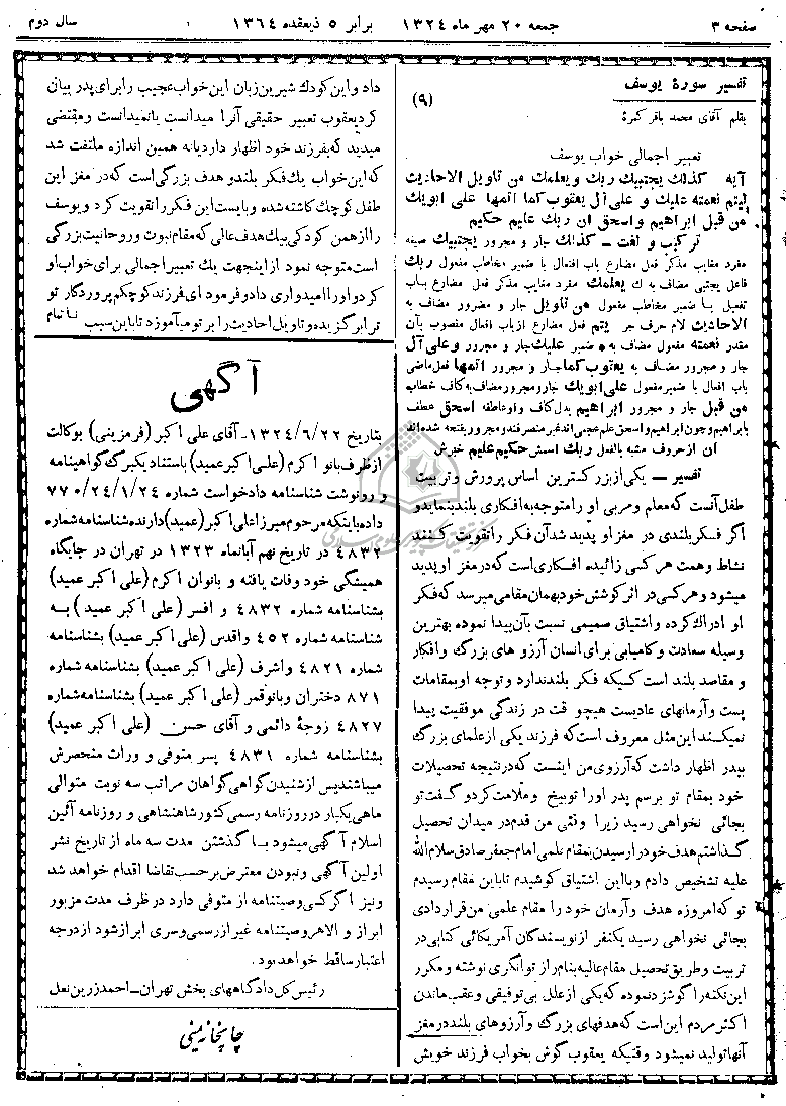 صفحه ۳
جمعه ۲۰ مهر ماه ۱۳۲٤
برابر ۵ ذیقعده ۱۳٦٤
سال دوم
تفسیر سورهٔ یوسف
(۹)
بقلم آقای محمد باقر کمرهٔ
تعبیر اجمالی خواب یوسف
آیه كذلك یجتبیك ربك ویعلمك من تاویل الاحادیث
لیتم نعمته علیك و علی آل یعقوب كما اتمها علی ابویك
من قبل ابراهیم و اسحق ان ربك علیم حكیم
ترکیب و لغت – كذلك جار و مجرور یجتبیك صیغه
مفرد مغایب مذکر فعل مضارع باب افتعال با ضمیر مخاطب مفعول ربك
فاعل یجتبی مضاف به ك یعلمك مفرد مغایب مذکر فعل مضارع باب
تفعیل با ضمیر مخاطب مفعول من تاویل جار و مضرور مضاف به
الاحادیث لام حرف جر یتم فعل مضارع از باب افعال منصوب بآن
مقدر نعمته مفعول مضاف به ه ضمیر علیك جار و مجرور و علی آل
جار و مجرور مضاف به یعقوب كما جار و مجرور اتمها فعل ماضی
باب افعال با ضمیر مفعول علی ابویك جار و مجرور مضاف به کاف خطاب
من قبل جار و مجرور ابراهیم بدل کاف و او عاطفه اسحق عطف
بابراهیم و چون ابراهیم و اسحق علم عجمی اند غیر منصرفند و مجرور بفتحه شده‌اند
ان از حروف مشبه بالفعل ربك اسمش حكیم علیم خبرش
تفسیر – یکی از بزرگترین اساس پرورش و تربیت
طفل آنست که معلم و مربی او را متوجه به افکاری بلند بنماید و
اگر فکر بلندی در مغز او پدید شد آن فکر را تقویت کنند
نشاط و همت هر کسی زائیده افکاری است که در مغز او پدید
میشود و هر کسی در اثر کوشش خود بهمان مقامی میرسد که فکر
او ادراك کرده و اشتیاق صمیمی نسبت بآن پیدا نموده بهترین
وسیله سعادت و کامیابی برای انسان آرزو های بزرگ و افکار
و مقاصد بلند است کسیکه فکر بلند ندارد و توجه او بمقامات
پست و آرمانهای عادیست هیچو قت در زندگی موفقیت پیدا
نمیکند این مثل معروف است که فرزند یکی از علمای بزرگ
بپدر اظهار داشت که آرزوی من اینست که در نتیجه تحصیلات
خود بمقام تو برسم پدر او را توبیخ و ملامت کرد و گفت تو
بجائی نخواهی رسید زیرا وقتی من قدم در میدان تحصیل
گذاشتم هدف خود را رسیدن بمقام علمی امام جعفر صادق سلام الله
علیه تشخیص دادم و با این اشتیاق کوشیدم تا باین مقام رسیدم
تو که امروزه هدف و آرمان خود را مقام علمی من قرار دادی
بجائی نخواهی رسید یکنفر از نویسندگان آمریکائی کتابی در
تربیت و طریق تحصیل مقام عالیه بنام راز توانگری نوشته و مکرر
این نکته را گوشزد نموده که یکی از علل بی توفیقی و عقب ماندن
اکثر مردم این است که هدفهای بزرگ و آرزوهای بلند در مغز
آنها تولید نمیشود وقتیکه یعقوب گوش بخواب فرزند خویش
داد و این کودك شیرین زبان این خواب عجیب را برای پدر بیان
کرد یعقوب تعبیر حقیقی آنرا میدانست یا نمیدانست و مقتضی
میدید که بفرزند خود اظهار دارد یا نه همین اندازه ملتفت شد
که این خواب یك فکر بلند و هدف بزرگی است که در مغز این
طفل کوچك کاشته شده و بایست این فکر را تقویت کرد و یوسف
را از همن کودکی بیك هدف عالی که مقام نبوت و روحانیت بزرگی
است متوجه نمود از اینجهت یك تعبیر اجمالی برای خواب او
کرد و او را امیدواری داد و فرمود ای فرزند کوچکم پروردگار تو
ترا برگزیده و تاویل احادیث را بر تو میآموزد تا باین سبب نا تمام
آگهی
بتاریخ ۱۳۲٤/٦/۲۲- آقای علی اکبر (فرمزینی) بوکالت
از طرف بانو اکرم (علی اکبر عمید) باستناد یکبرگ گواهینامه
و رونوشت شناسنامه دادخواست شماره ۷۷۰/۲٤/۱/۲٤
داده باینکه مرحوم میرزا علی اکبر (عمید) دارنده شناسنامه شماره
٤۸۳۲ در تاریخ نهم آبانماه ۱۳۲۳ در تهران در جایگاه
همیشگی خود وفات یافته و بانوان اکرم (علی اکبر عمید)
بشناسنامه شماره ٤۸۳۲ و افسر (علی اکبر عمید) به
شناسنامه شماره ٤۵۲ و اقدس (علی اکبر عمید) بشناسنامه
شماره ٤۸۲۱ و اشرف (علی اکبر عمید) بشناسنامه شماره
۸۷۱ دختران و بانو قمر (علی اکبر عمید) بشناسنامه شماره
٤۸۲۷ زوجهٔ دائمی و آقای حسن (علی اکبر عمید)
بشناسنامه شماره ٤۸۳۱ پسر متوفی و وراث منحصرش
میباشند پس از شنیدن گواهی گواهان مراتب سه نوبت متوالی
ماهی یکبار در روزنامه رسمی کشور شاهنشاهی و روزنامه آئین
اسلام آگهی میشود با گذشتن مدت سه ماه از تاریخ نشر
اولین آگهی و نبودن معترض برحسب تقاضا اقدام خواهد شد
و نیز اگر کسی وصیتنامه از متوفی دارد در ظرف مدت مزبور
ابراز و الا هر وصیتنامه غیر از رسمی و سری ابراز شود از درجه
اعتبار ساقط خواهد بود.
رئیس کل دادگاههای بخش تهران – احمد زرین نعل
چاپخانه مینی